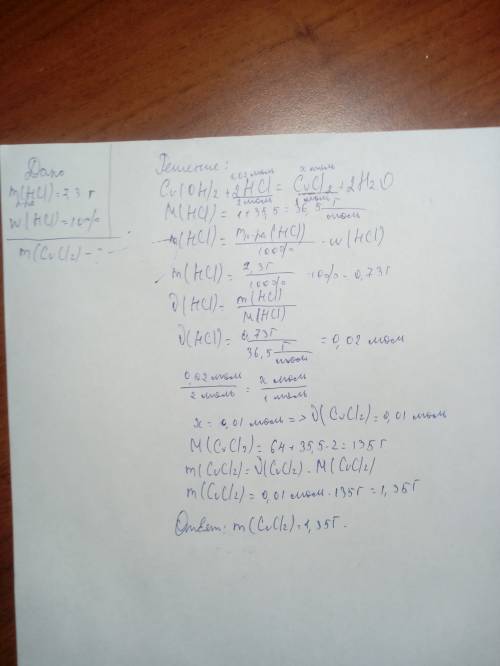 Дано
m(HCl)=7,3 г
р-ра
w(HCl)=10%
m(CuCl2)-?
Решение:
0,02 моль x моль
Cu(OH)2 + 2HCl = CuCl2 + 2H2O
2 моль 1 моль
M(HCl) = 1+35,5 = 36,5 г/моль
m(HCl) = mр-ра(HCl)/100% · w(HCl)
m(HCl) = 7,3г/100% · 10% = 0,73г
ν(HCl) = m(HCl)/M(HCl)
ν(HCl) = 0,73г/36,5 г/моль = 0,02 моль
0,02 моль/2 моль = x моль/1 моль
x = 0,01 моль => ν(CuCl2) = 0,01 моль
M(CuCl2) = 64+35,5·2 = 135г
m(CuCl2) = ν(CuCl2) · M(CuCl2)
m(CuCl2) = 0,01 моль · 135г = 1,35г
Ответ: m(CuCl2) = 1,35г.